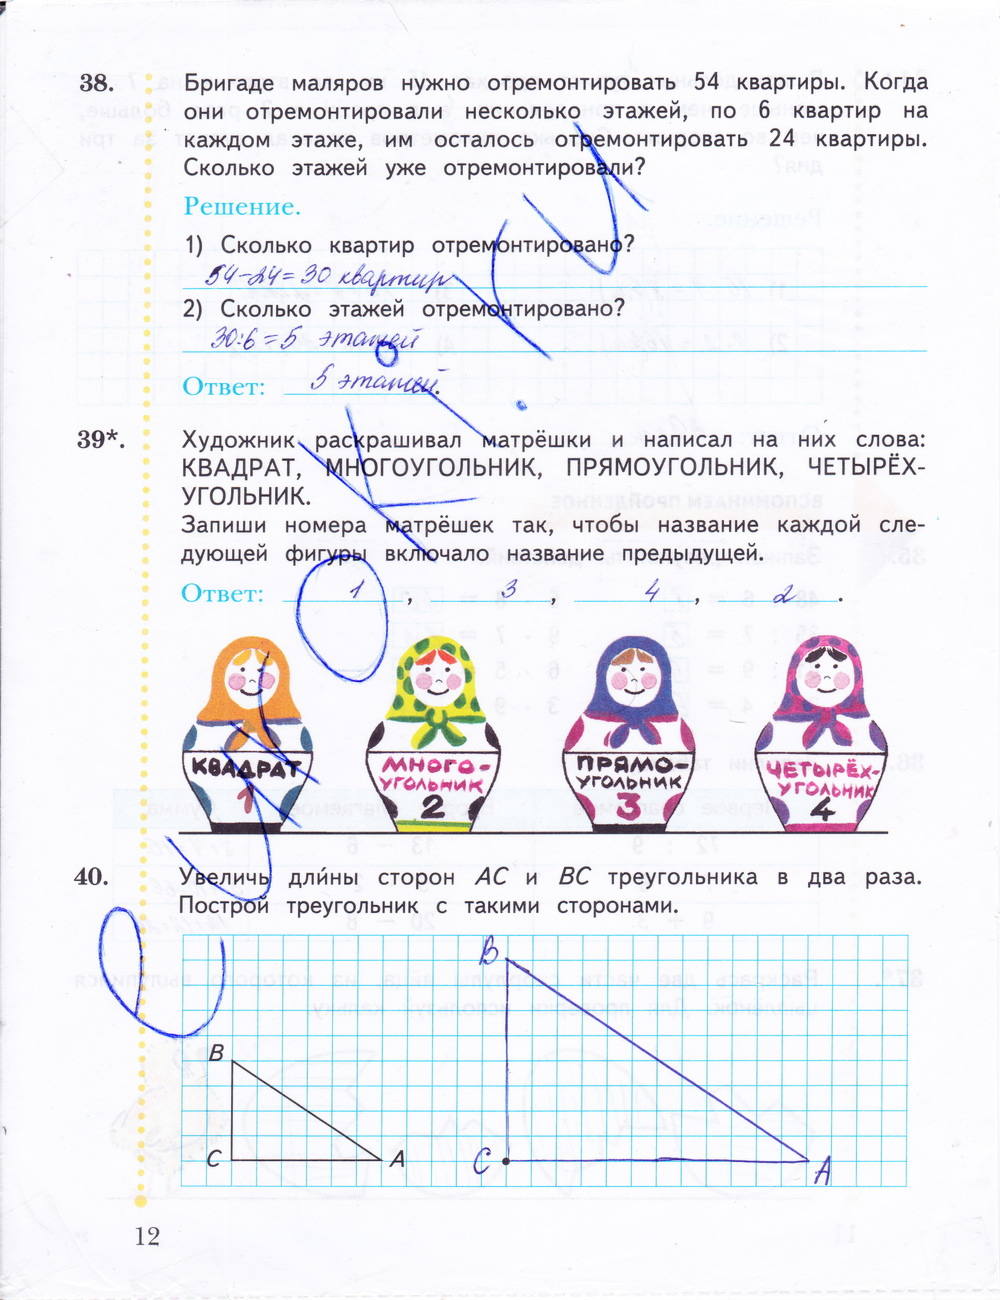 38. Бригаде маляров нужно отремонтировать 54 квартиры. Когда
они отремонтировали несколько этажей, по 6 квартир на
каждом этаже, им осталось отремонтировать 24 квартиры.
Сколько этажей уже отремонтировали?
Решение.
1) Сколько квартир отремонтировано?
54-24=30 квартир
2) Сколько этажей отремонтировано?
30:6=5 этажей
Ответ: 5 этажей.
39*. Художник раскрашивал матрёшки и написал на них слова:
КВАДРАТ, МНОГОУГОЛЬНИК, ПРЯМОУГОЛЬНИК, ЧЕТЫРЁХ-
УГОЛЬНИК.
Запиши номера матрёшек так, чтобы название каждой сле-
дующей фигуры включало название предыдущей.
Ответ: 1, 3, 4, 2.
КВАДРАТ
1
МНОГО-
УГОЛЬНИК
2
ПРЯМО-
УГОЛЬНИК
3
ЧЕТЫРЁХ-
УГОЛЬНИК
4
40. Увеличь длины сторон AC и BC треугольника в два раза.
Построй треугольник с такими сторонами.
B
B
C
A
C
A
12